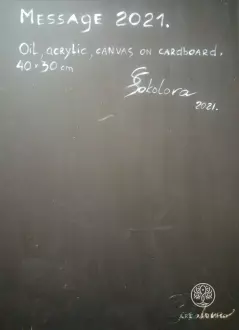 MESSAGE 2021.
Oil, acrylic, CANVAS ON CARDBOARD.
40×30 cm
Sokolova
2021.